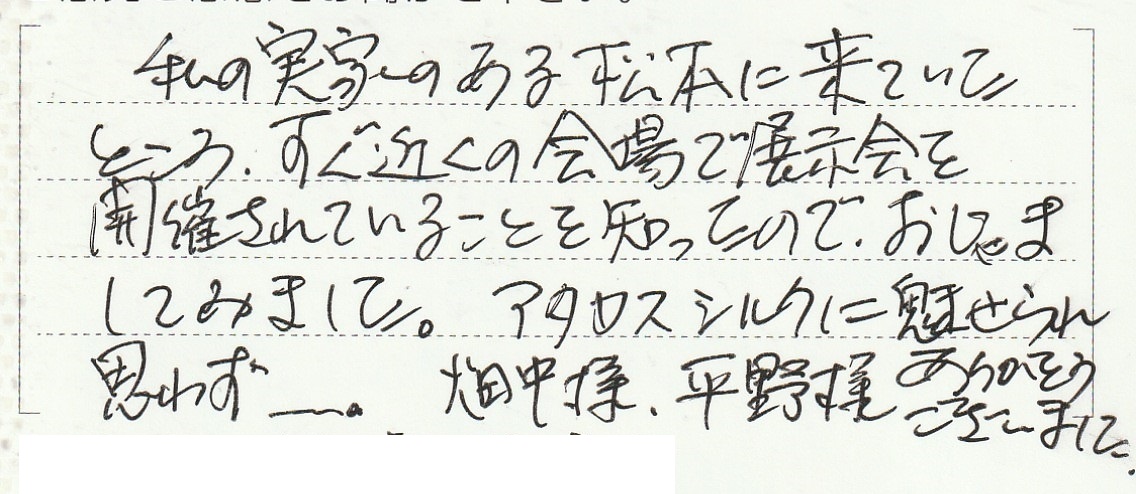 私の実家のある松本に来ていた
ところ、すぐ近くの会場で展示会を
開催されていることを知ったので、おじゃま
してみました。アタロスシルクに魅せられ
思わず__。畑中様、平野様ありがとう
ございました。